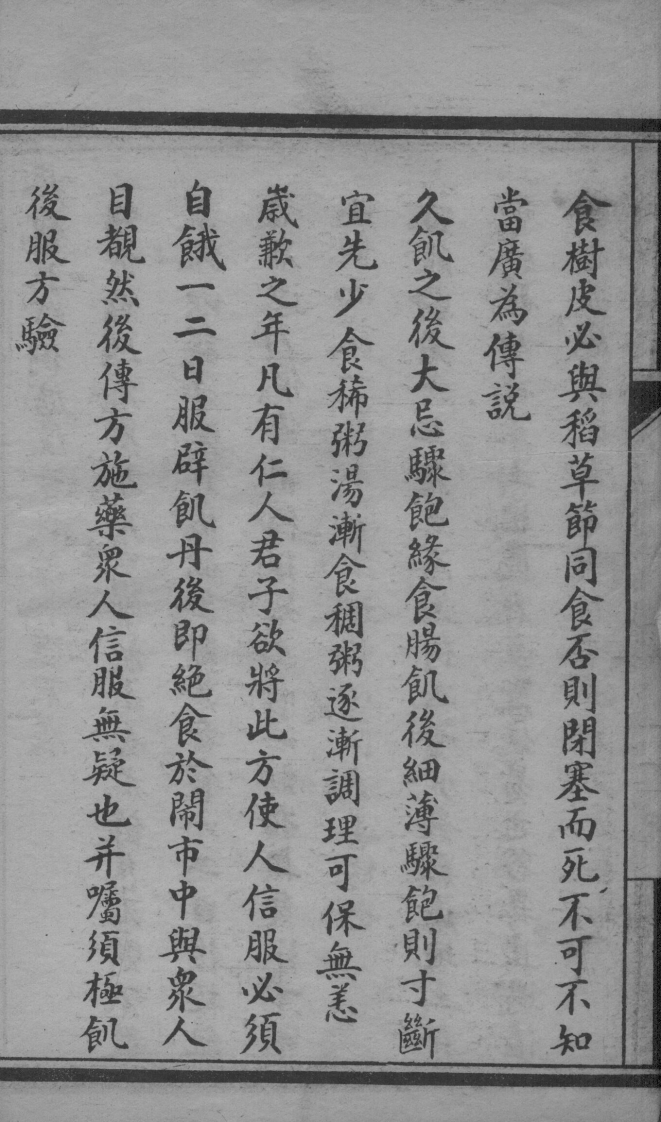 食樹皮必與稻草節同食否則閉塞而死不可不知
當廣為傳説
久飢之後大忌驟飽緣食腸飢後細薄驟飽則寸斷
宜先少食稀粥湯漸食稠粥逐漸調理可保無恙
歳歉之年凡有仁人君子欲將此方使人信服必須
自餓一二日服辟飢丹後即絶食於鬧市中與衆人
目覩然後傳方施藥衆人信服無疑也并囑須極飢
後服方驗